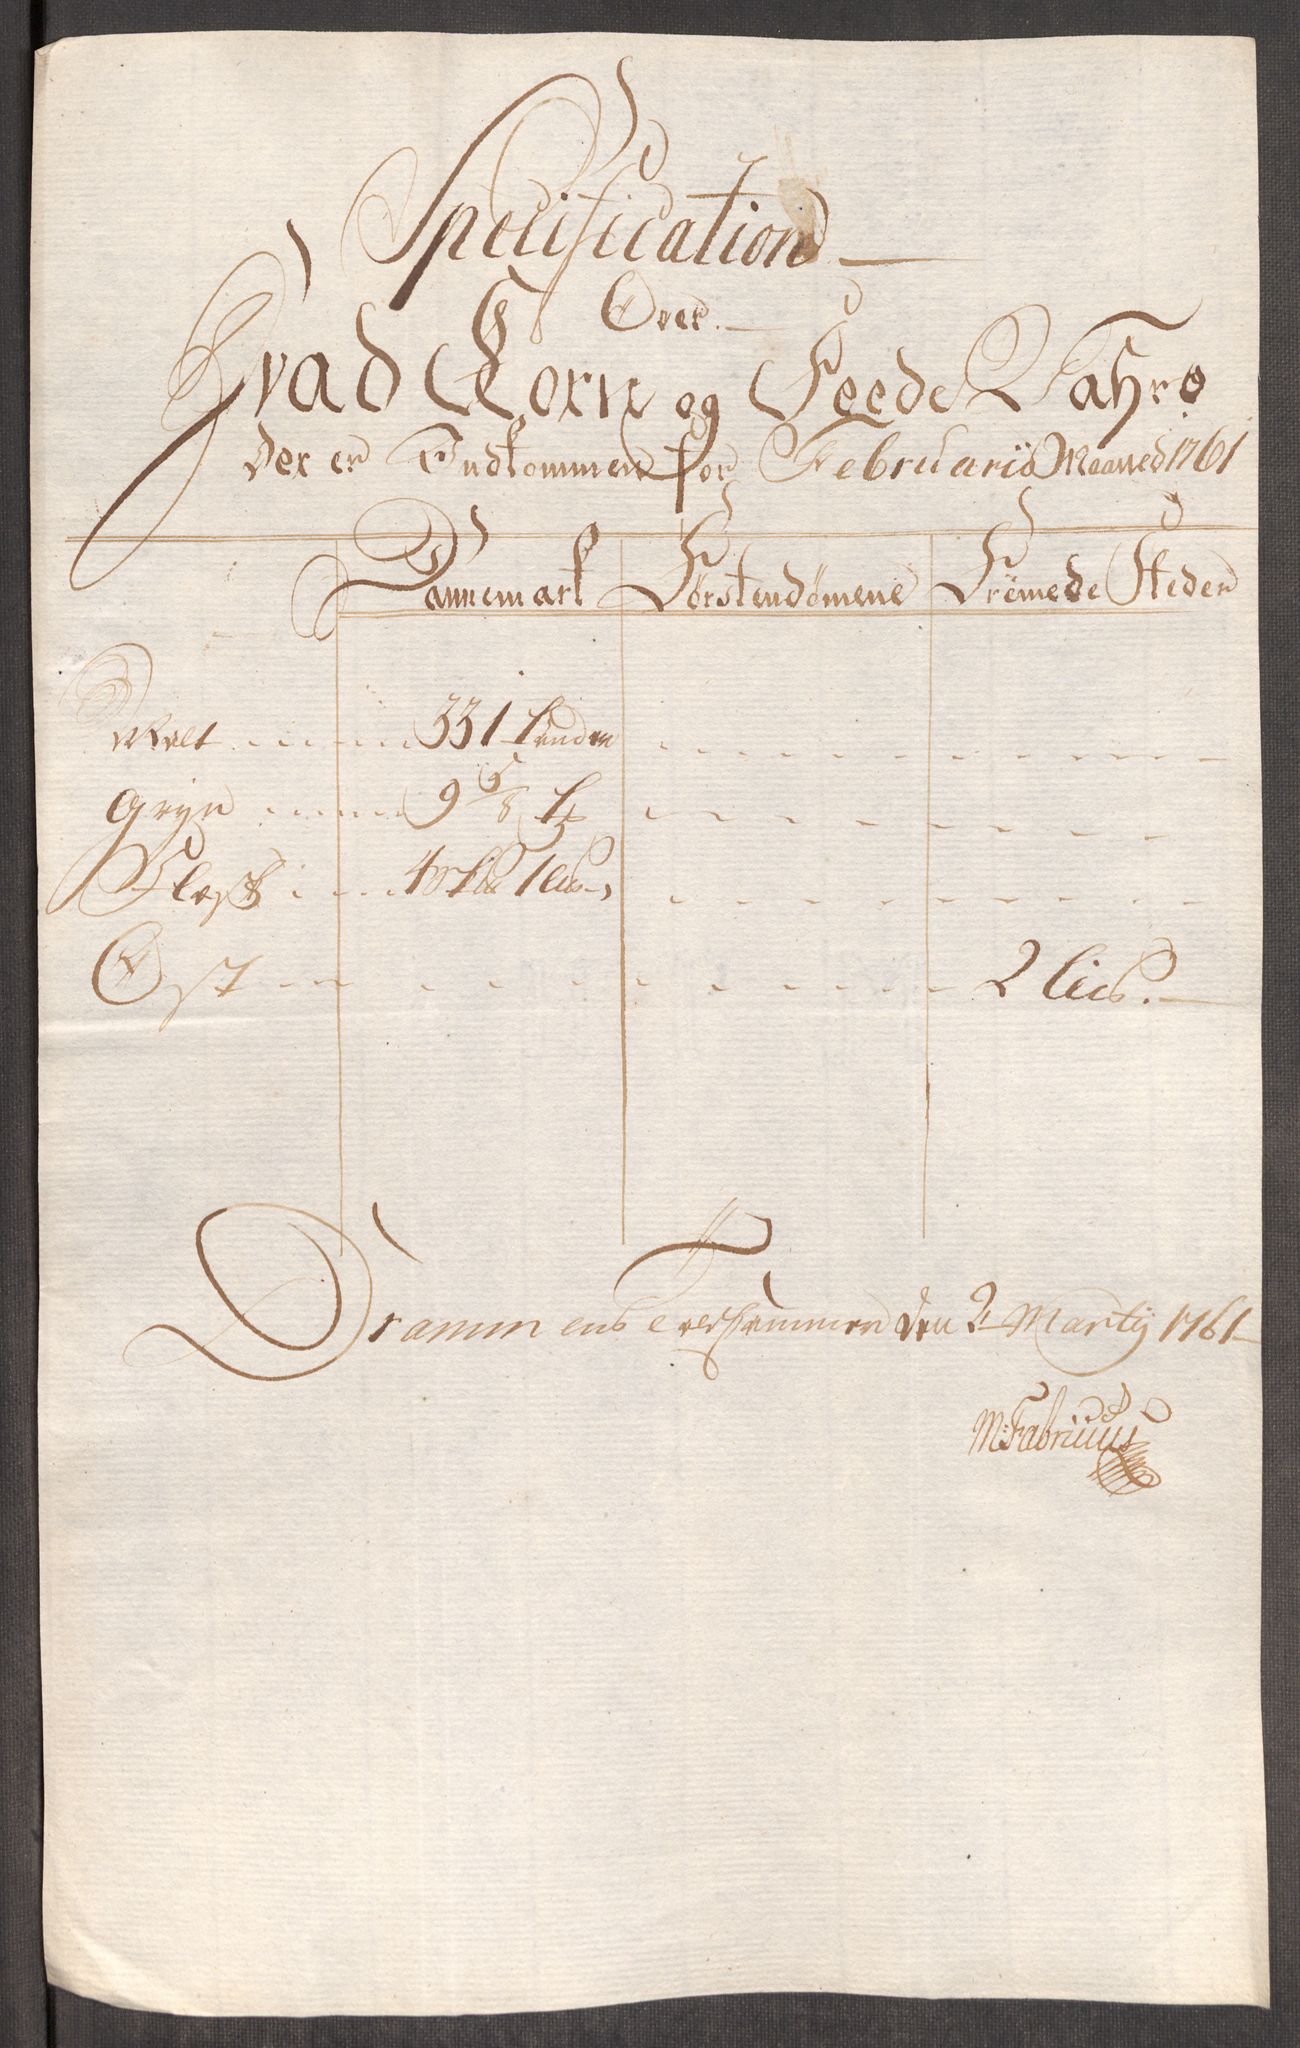 Specification
Over
Hvad Korn og Feede Vahre
der er Indkommen for Februarii Maaned 1761
Dannemark Førstendömene Fremede Steder
Malt 331 tønder
Gryn 9 5/8 tr
Flæsk 1 lis
Ost 2 lis.
Drammens toldkammer den 2 Martij 1761
M: Fabricius